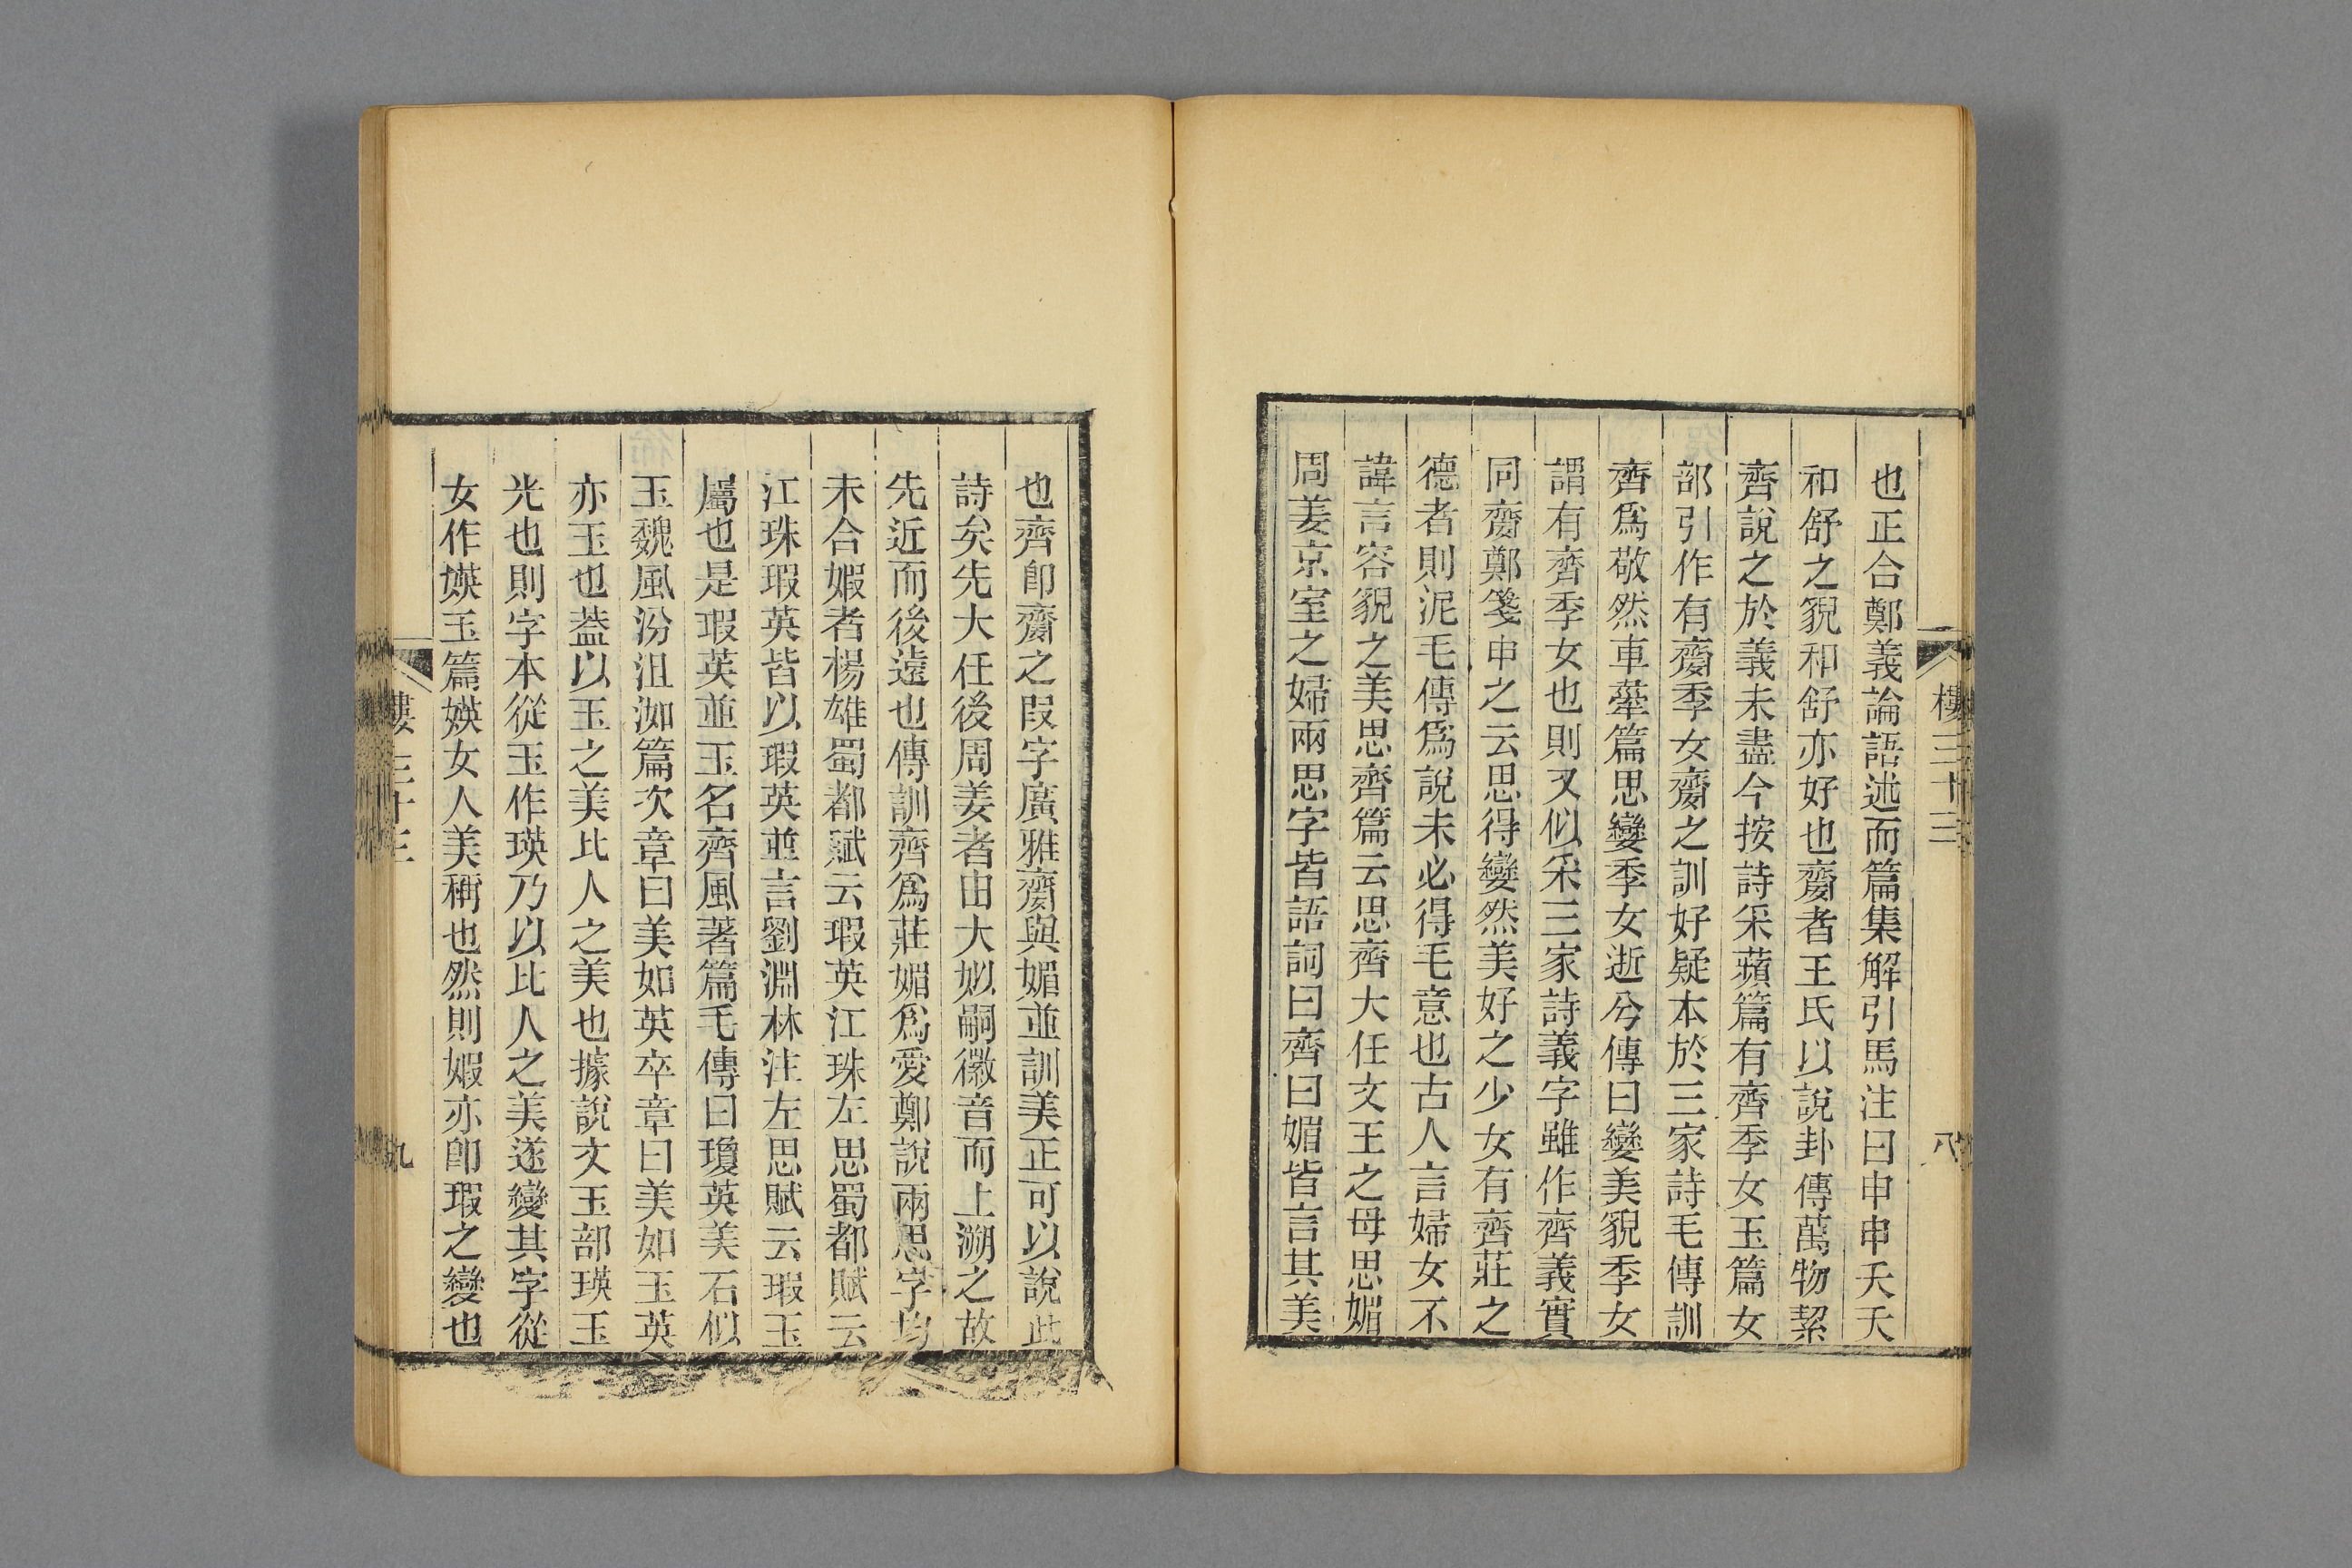 也正合鄭義論語述而篇集解引馬注曰申申夭夭
和舒之貌和舒亦好也齌者王氏以說卦傳萬物絜
齊說之於義未盡今按詩采蘋篇有齊季女玉篇女
部引作有齌季女齌之訓好疑本於三家詩毛傳訓
齊爲敬然車舝篇思孌季女逝兮傳曰孌美貌季女
謂有齊季女也則又似采三家詩義字雖作齊義實
同齌鄭箋申之云思得孌然美好之少女有齊莊之
德者則泥毛傳爲說未必得毛意也古人言婦女不
諱言容貌之美思齊篇云思齊大任文王之母思媚
周姜京室之婦兩思字皆語詞曰齊曰媚皆言其美
樓三十三
八
也齊卽齌之叚字廣雅齌與媚並訓美正可以說此
詩矣先大任後周姜者由大姒嗣徽音而上溯之故
先近而後遠也傳訓齊爲莊媚爲愛鄭說兩思字均
未合婽者楊雄蜀都賦云瑕英江珠左思蜀都賦云
江珠瑕英皆以瑕英並言劉淵林注左思賦云瑕玉
屬也是瑕英並玉名齊風著篇毛傳曰瓊英美石似
玉魏風汾沮洳篇次章曰美如英卒章曰美如玉英
亦玉也葢以玉之美比人之美也據說文玉部瑛玉
光也則字本從玉作瑛乃以比人之美遂變其字從
女作媖玉篇媖女人美稱也然則婽亦卽瑕之變也
樓三十三
九